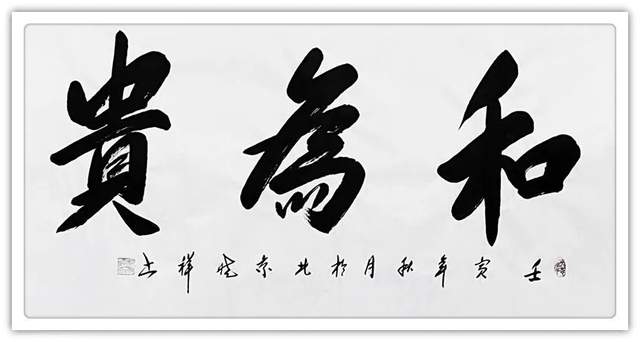 和為貴
壬寅年秋月於北京祥书